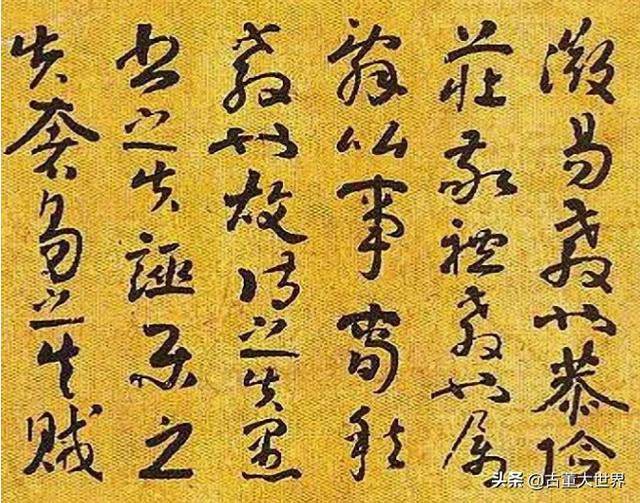 微易教也恭儉
莊敬禮教也屬
辭比事春秋
教也故詩之失愚
書之失誣樂之
失奢易之失賊
头条 @古董大世界